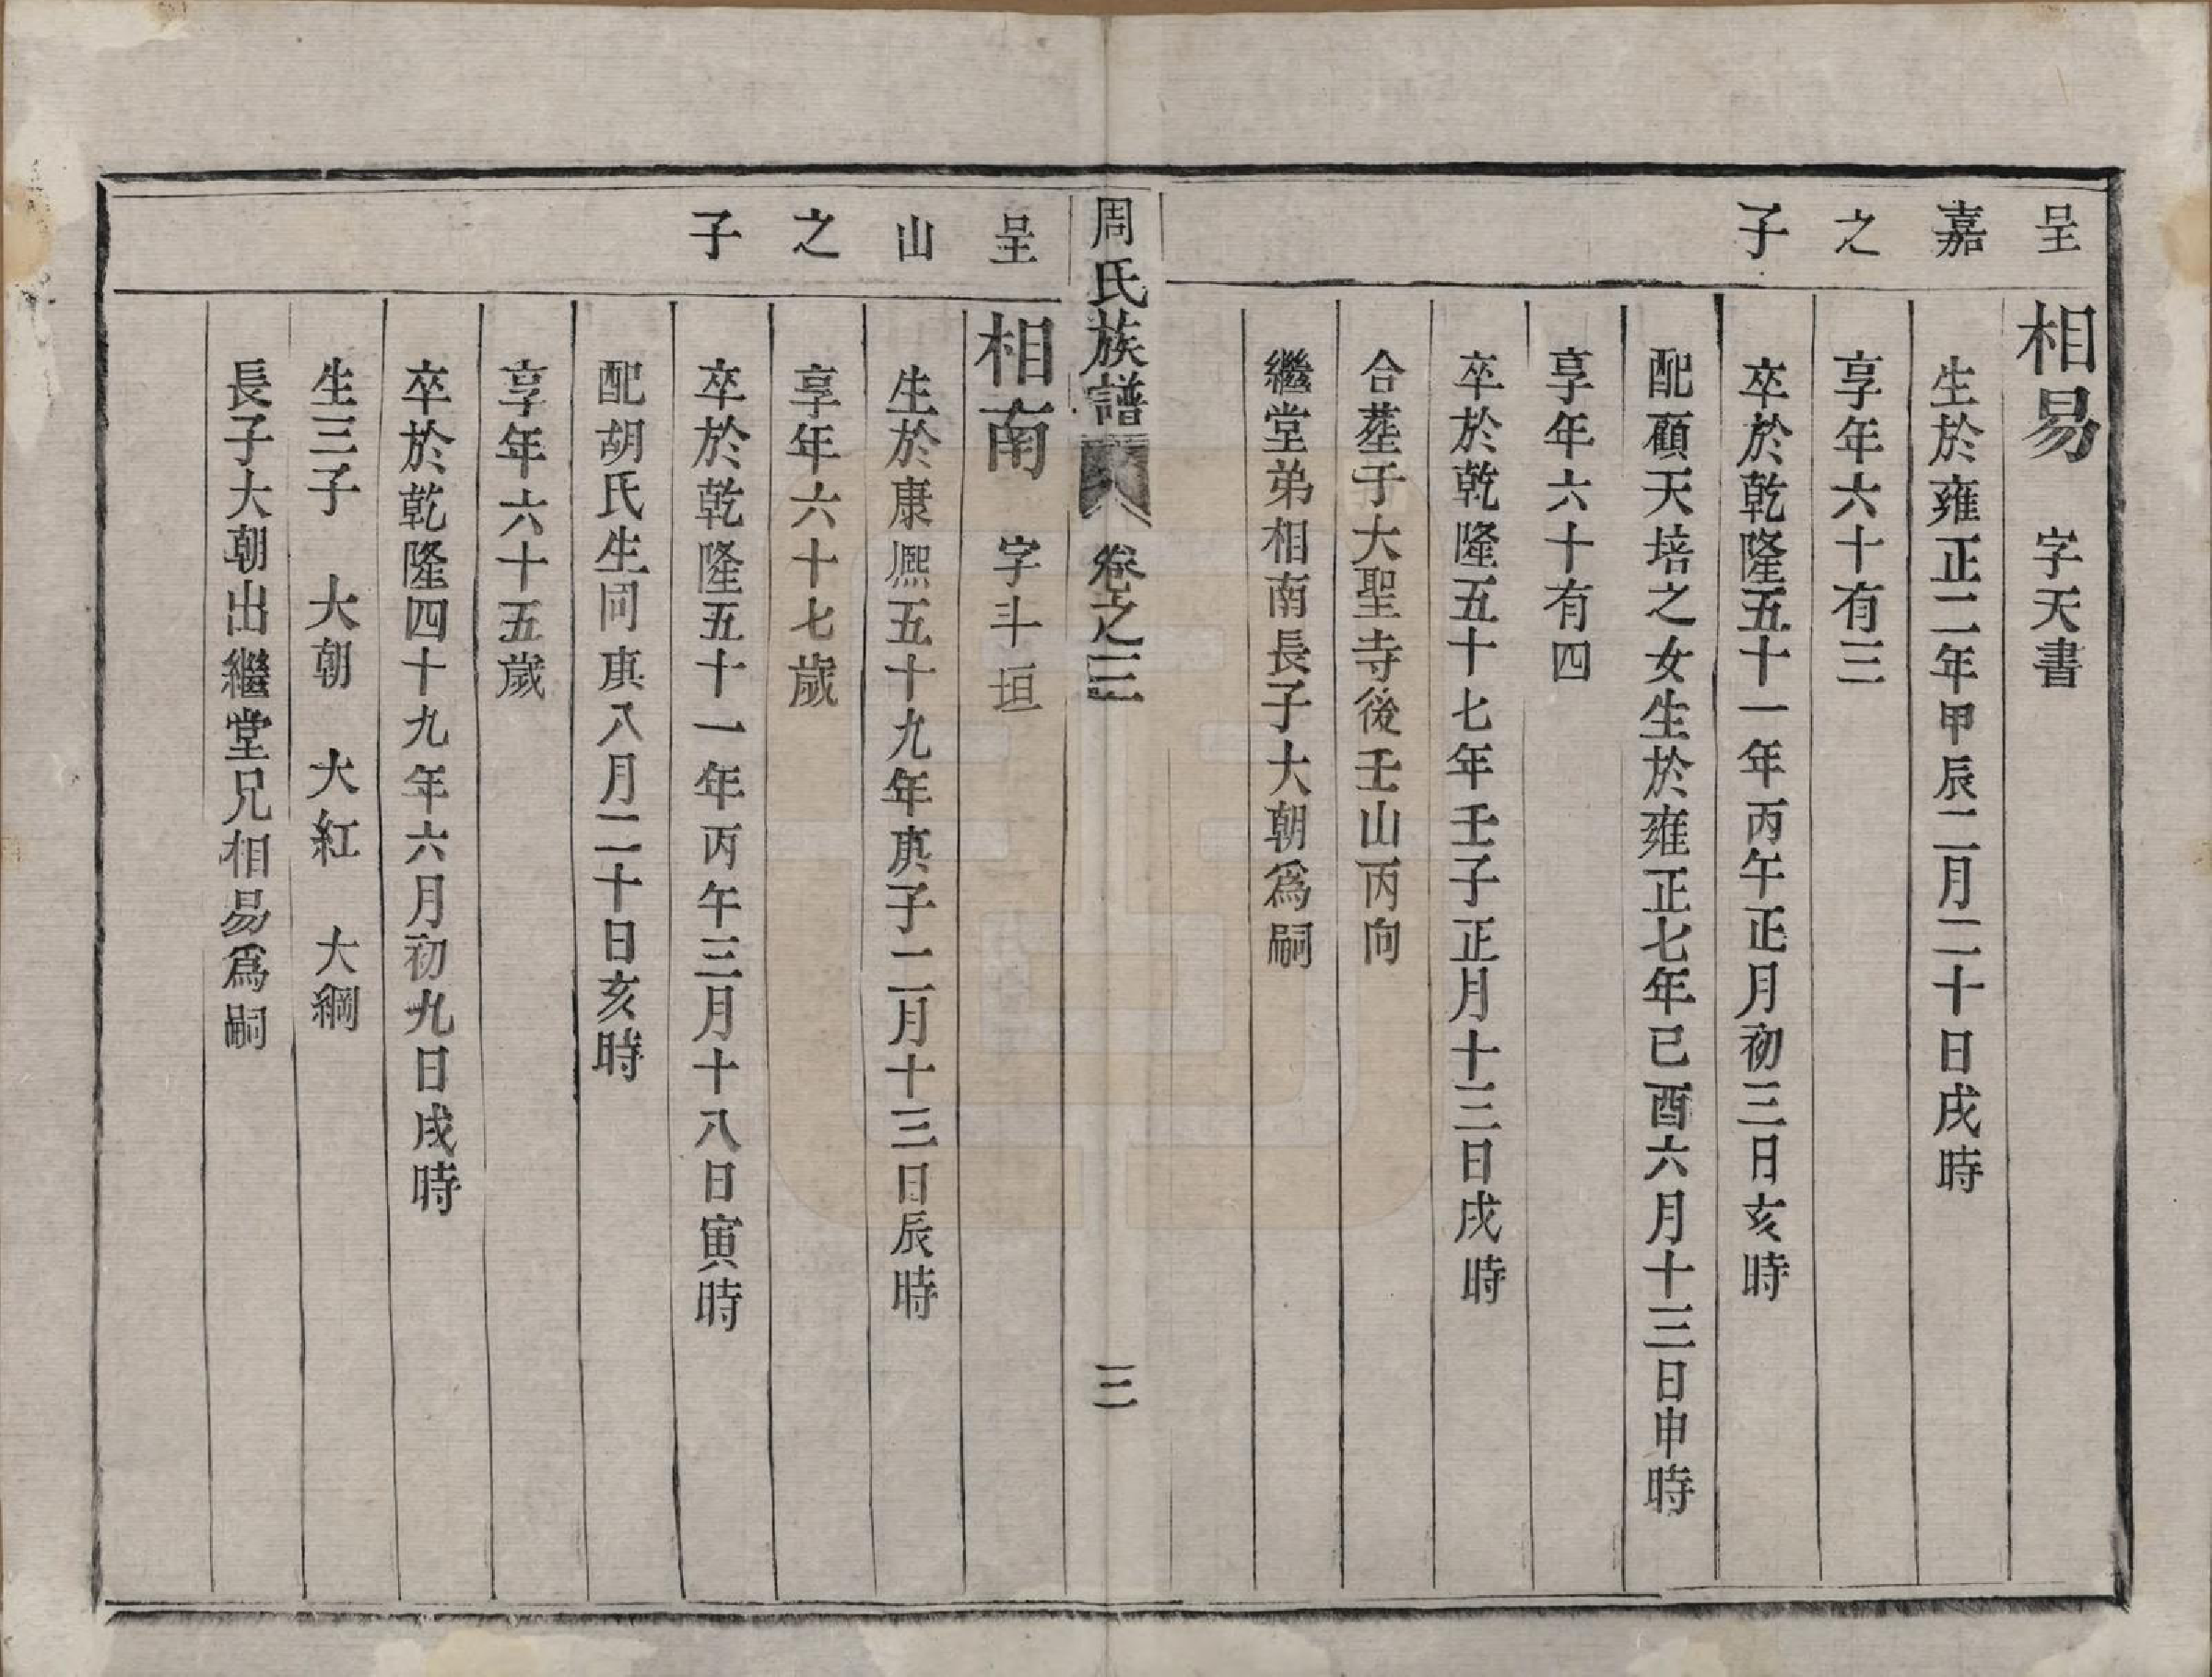 呈嘉之子
相易　字天書
生於雍正二年甲辰二月二十日戌時
享年六十有三
卒於乾隆五十一年丙午正月初三日亥時
配顧天培之女生於雍正七年已酉六月十三日申時
享年六十有四
卒於乾隆五十七年壬子正月十三日戌時
合塟于大聖寺後壬山丙向
繼堂弟相南長子大朝爲嗣
周氏族譜　卷之三　三
呈山之子
相南　字斗垣
生於康熈五十九年庚子二月十三日辰時
享年六十七歲
卒於乾隆五十一年丙午三月十八日寅時
配胡氏生同庚八月二十日亥時
享年六十五歲
卒於乾隆四十九年六月初九日戌時
生三子　大朝　大紅　大綱
長子大朝出繼堂兄相易爲嗣